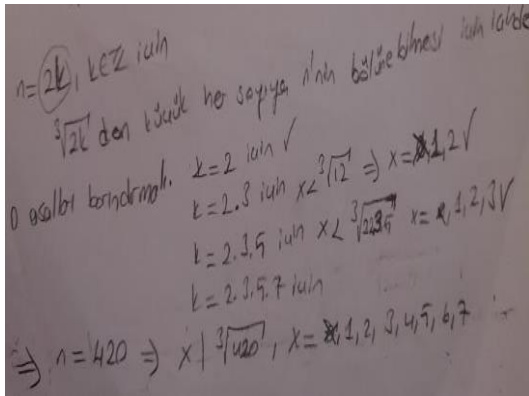 n=2k, k∈Z için
∛2k den küçük her sayıya n'nin bölünebilmesi için içinde
o asalları barındırmalı. k=2 için ✓
k=2.3 için x<∛12 ⇒ x=1,2 ✓
k=2.3.5 için x<∛2.2.3.5 x=1,2,3 ✓
k=2.3.5.7 için
⇒ n=420 ⇒ x|∛420, x=1,2,3,4,5,6,7